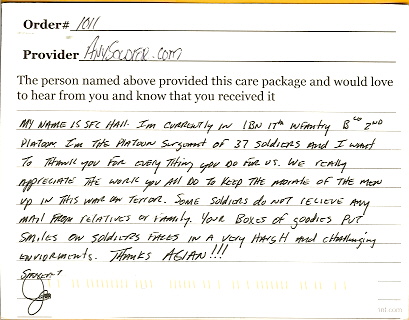 Order# 1011
Provider AnySoldier.com
The person named above provided this care package and would love
to hear from you and know that you received it
MY NAME IS SFC HALL. I'm CURRENTLY IN 1BN 17th INFANTRY B co 2ND
PLATOON I'm THE PLATOON SERGEANT OF 37 SOLDIERS AND I WANT
TO THANK YOU FOR EVERY THING YOU DO FOR US. WE REALLY
APPRECIATE THE WORK YOU ALL DO TO KEEP THE MORALE OF THE MEN
UP IN THIS WAR ON TERROR. SOME SOLDIERS DO NOT RELIEVE ANY
MAIL FROM RELATIVES OR FAMILY. YOUR BOXES OF GOODIES PUT
SMILES ON SOLDIERS FACES IN A VERY HARSH AND CHALLENGING
ENVIORMENTS. THANKS AGIAN!!!